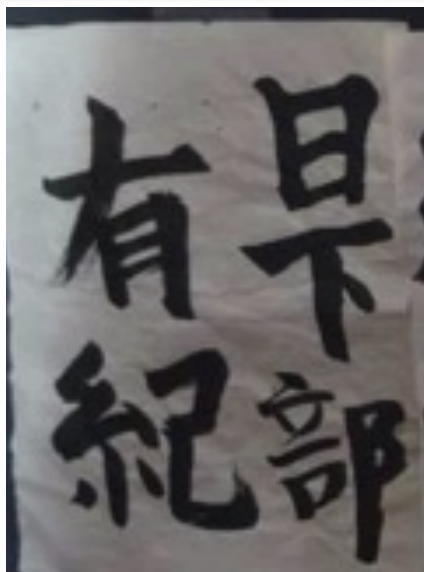 日下部
有紀